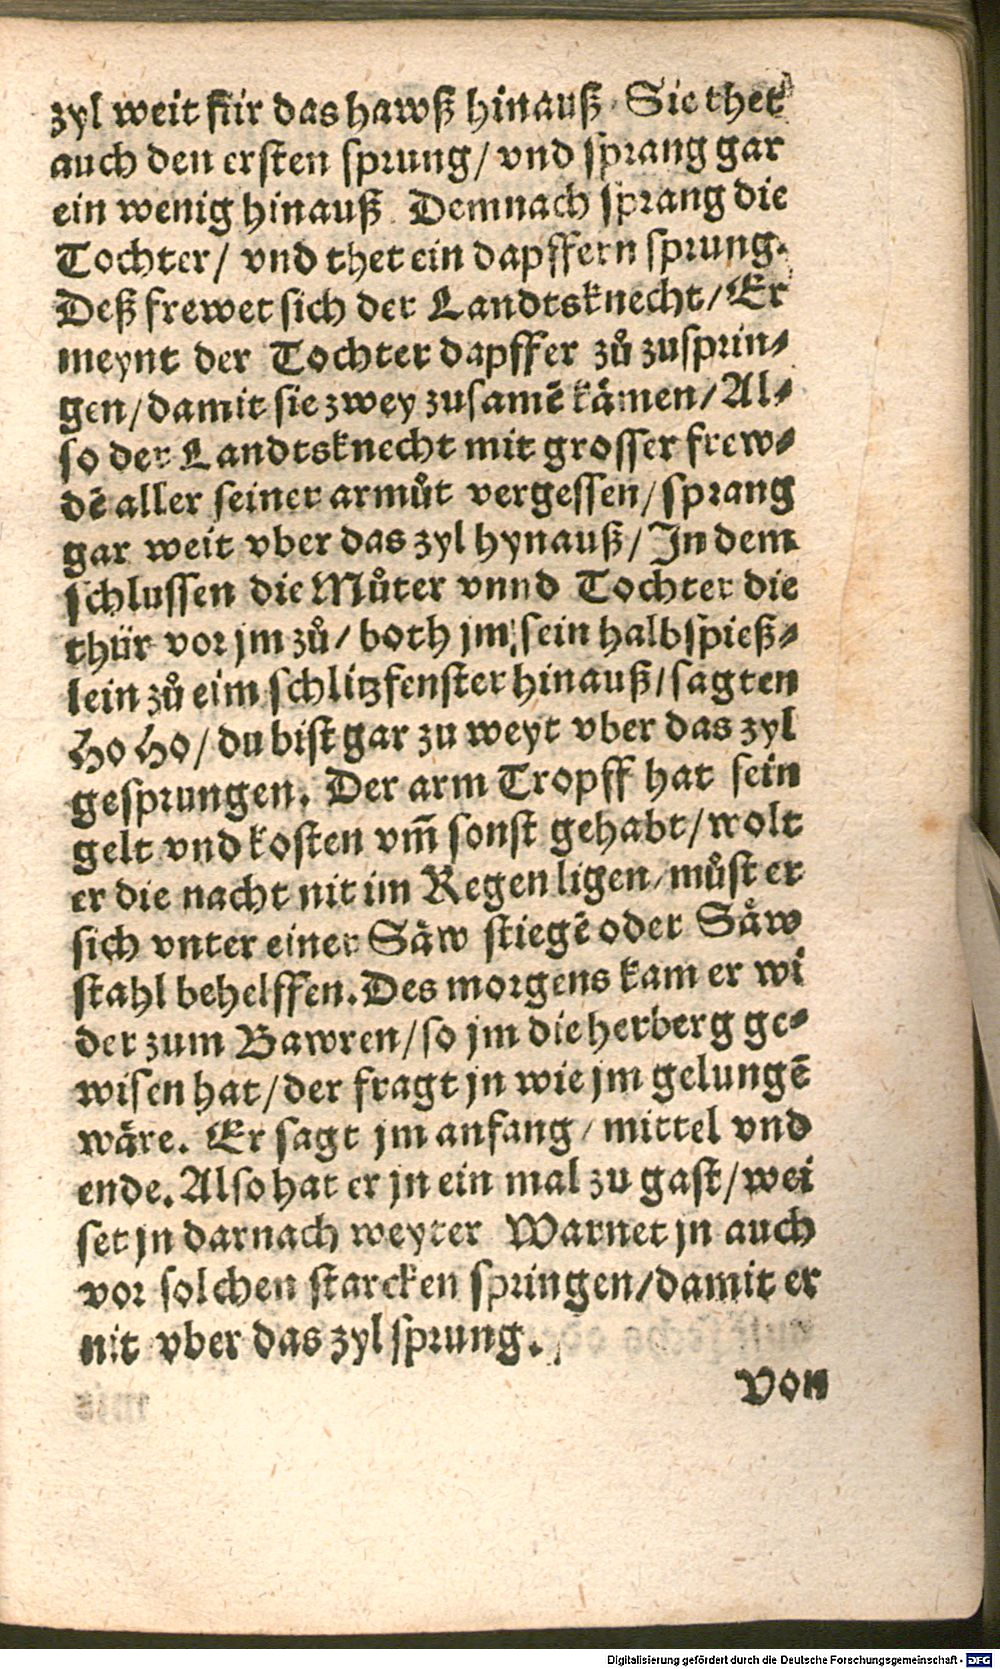 zyl weit für das hawß hinauß. Sie thet
auch den ersten sprung/ vnd sprang gar
ein wenig hinauß. Demnach sprang die
Tochter/ vnd thet ein dapffern sprung.
Deß frewet sich der Landtsknecht/ Er
meynt der Tochter dapffer zů zusprin-
gen/ damit sie zwey zusamē kämen/ Al-
so der Landtsknecht mit grosser frew-
dē aller seiner armůt vergessen/ sprang
gar weit vber das zyl hynauß/ In dem
schlussen die Můter vnnd Tochter die
thür vor jm zů/ both jm sein halbspieß-
lein zů eim schlitzfenster hinauß/ sagten
Ho Ho/ du bist gar zu weyt vber das zyl
gesprungen. Der arm Tropff hat sein
gelt vnd kosten vm̄ sonst gehabt/ wolt
er die nacht nit im Regen ligen/ můst er
sich vnter einer Säw stiegē oder Säw
stahl behelffen. Des morgens kam er wi
der zum Bawren/ so jm die herberg ge-
wisen hat/ der fragt jn wie jm gelungē
wäre. Er sagt jm anfang/ mittel vnd
ende. Also hat er jn ein mal zu gast/ wei
set jn darnach weyter Warnet jn auch
vor solchen starcken springen/ damit er
nit vber das zyl sprung.
von
Digitalisierung gefördert durch die Deutsche Forschungsgemeinschaft - DFG